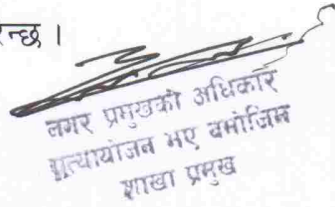 रन्छ ।
नगर प्रमुखको अधिकार
प्रत्यायोजन भए बमोजिम
शाखा प्रमुख